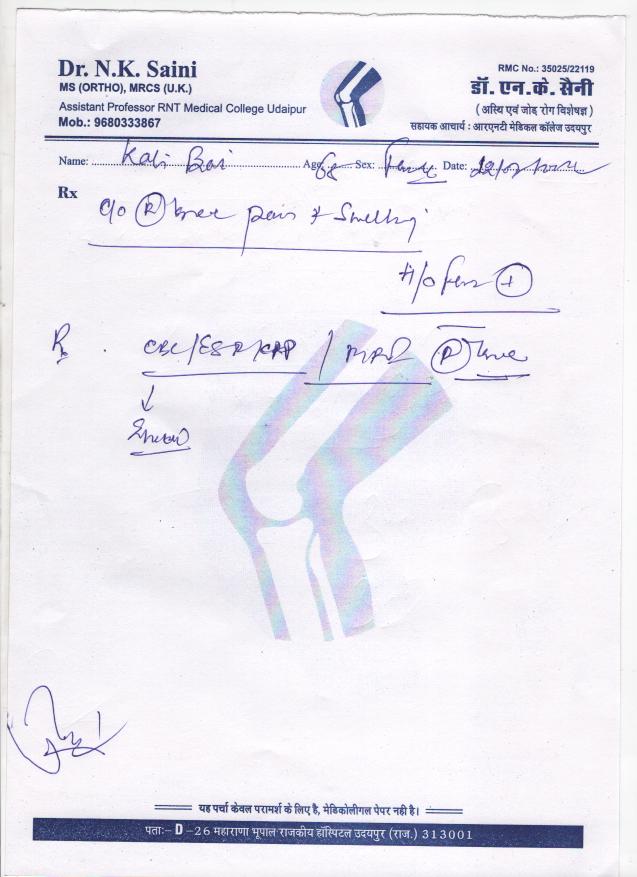 Dr. N.K. Saini
MS (ORTHO), MRCS (U.K.)
Assistant Professor RNT Medical College Udaipur
Mob.: 9680333867
RMC No.: 35025/22119
डॉ. एन.के. सैनी
(अस्थि एवं जोड़ रोग विशेषज्ञ)
सहायक आचार्य : आरएनटी मेडिकल कॉलेज उदयपुर
Name: Kali Bai Age Sex: Date:
Rx
c/o (R) knee pain & Swelling
H/o (+)
Rx CBC/ESR/CRP / MRI (R) knee
यह पर्चा केवल परामर्श के लिए है, मेडिकोलीगल पेपर नही है।
पताः- D -26 महाराणा भूपाल राजकीय हॉस्पिटल उदयपुर (राज.) 313001